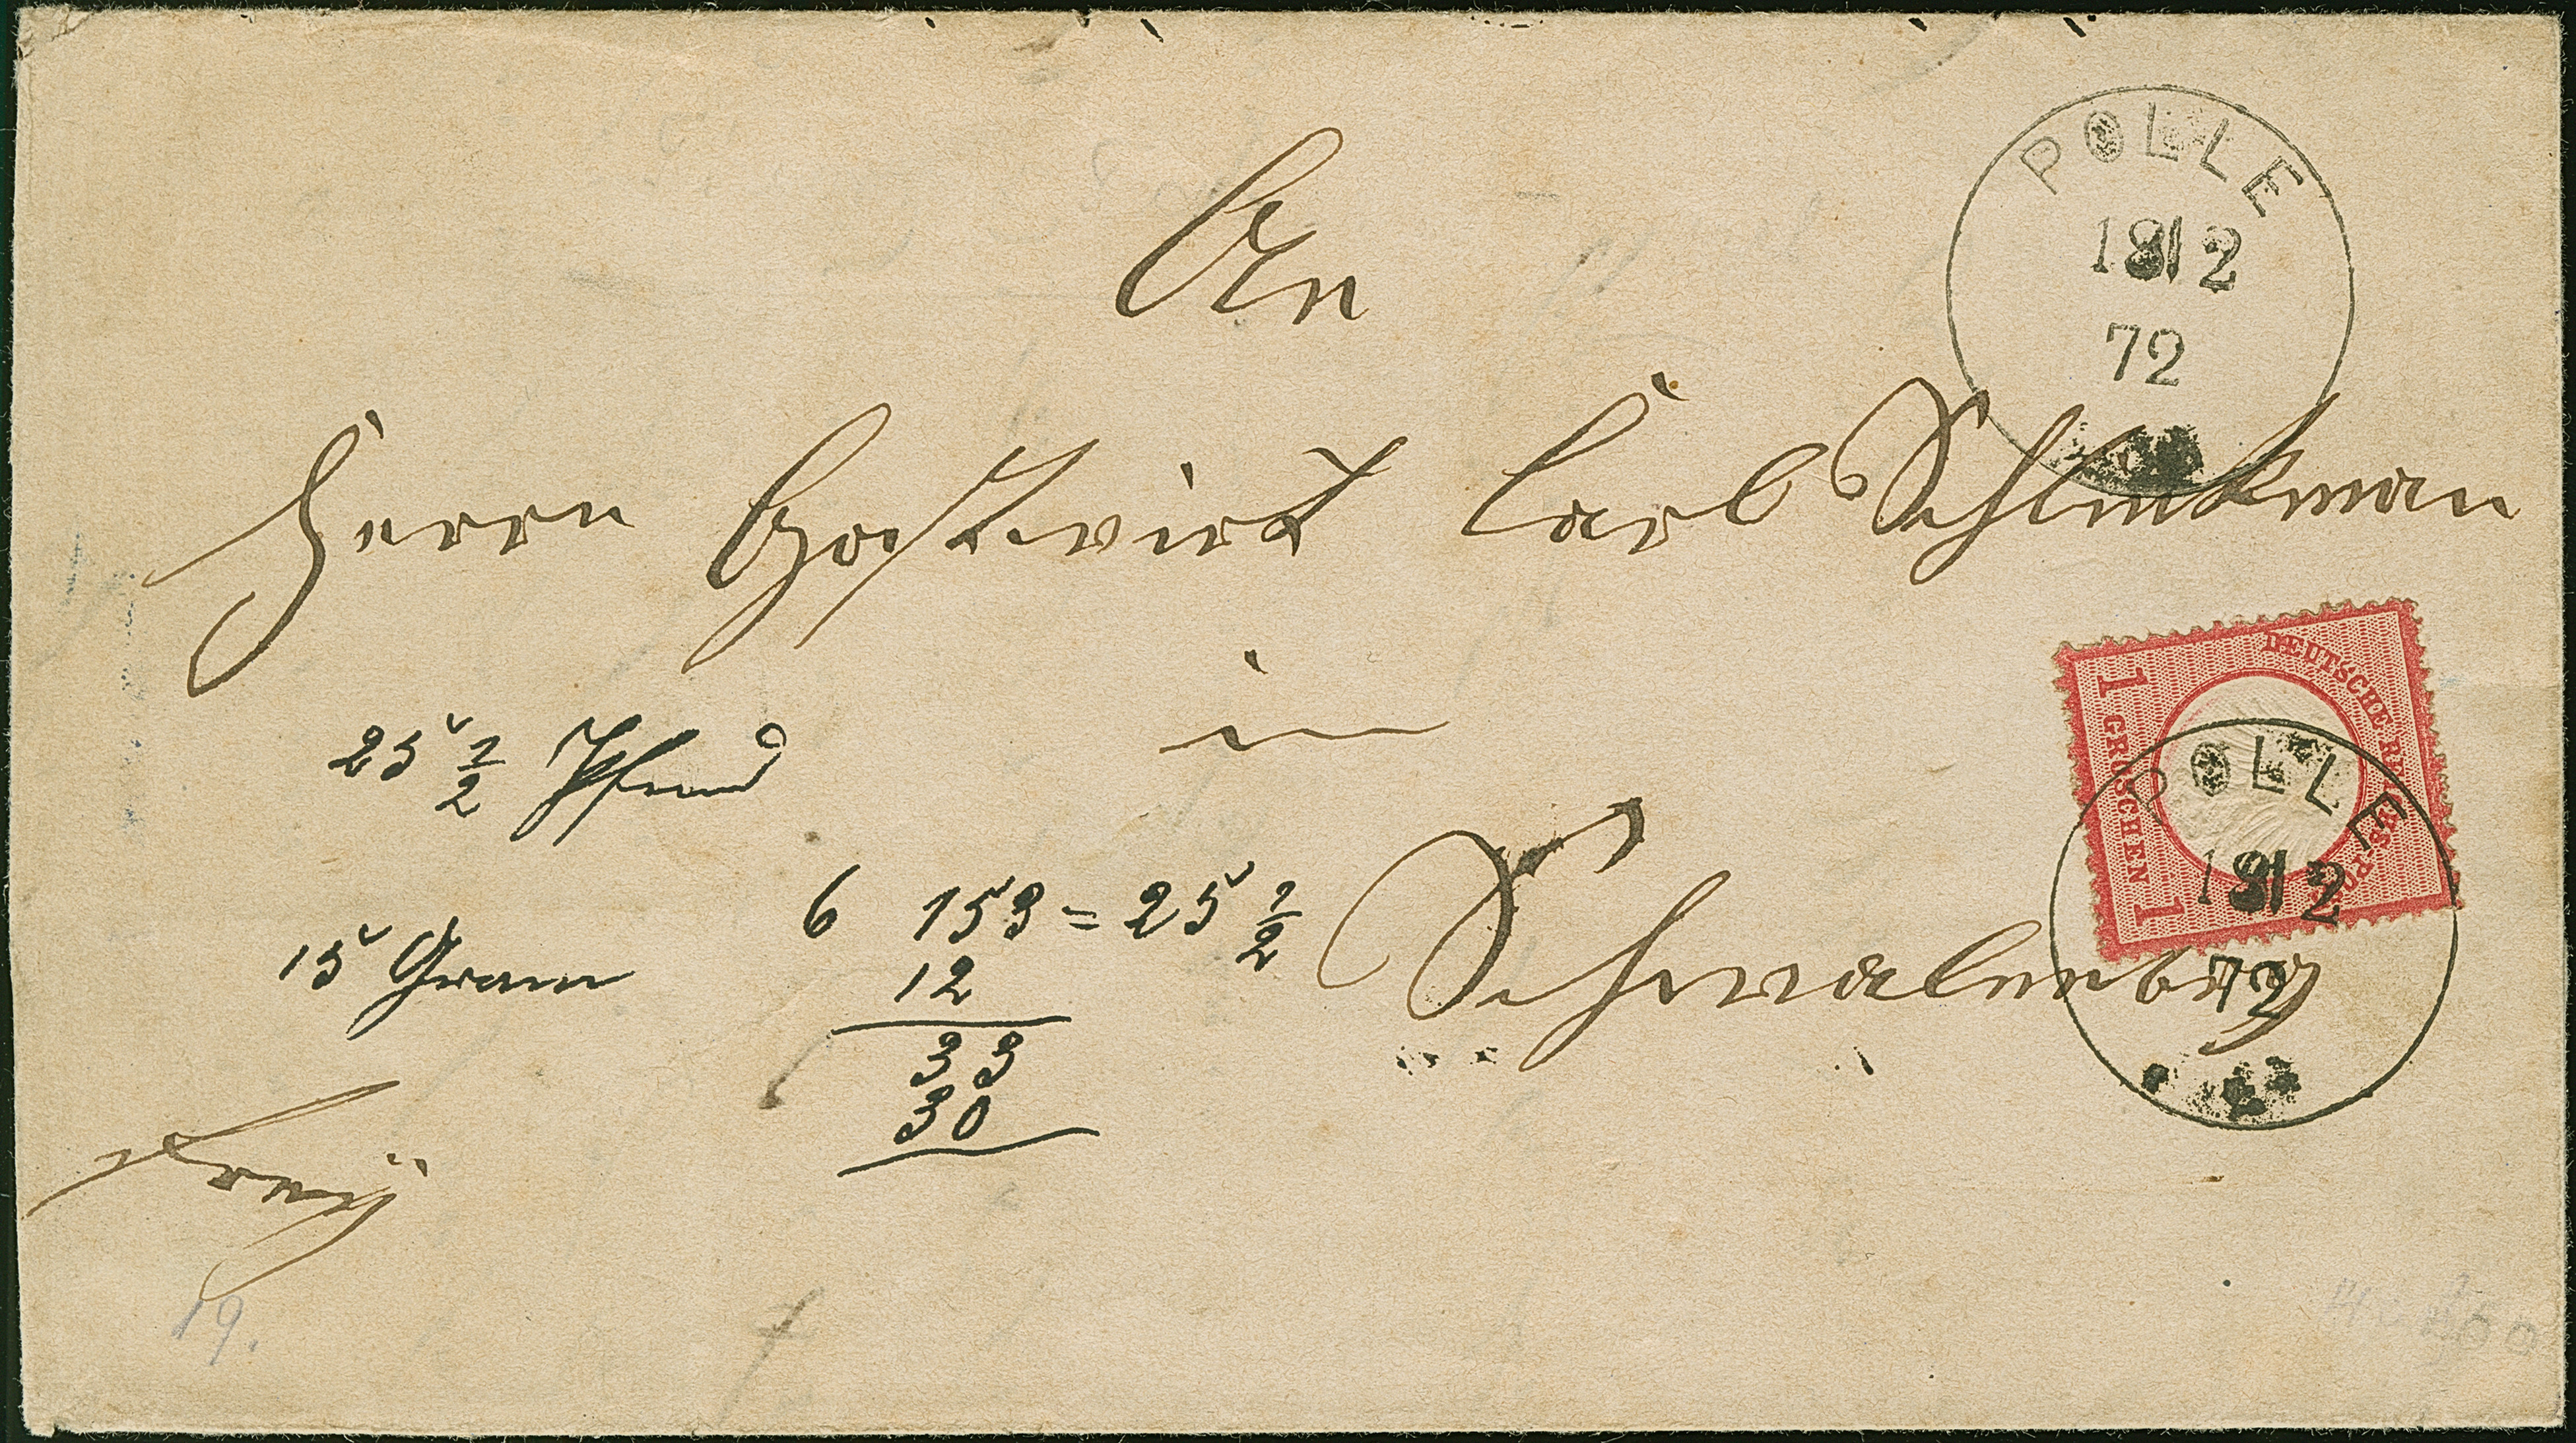 POLLE
18 12
72
An
Herrn Gastwirt Carl Schlinkman
in
Schwalenberg
DEUTSCHE REICHS-POST
1 GROSCHEN 1
POLLE
18 12
72
25 1/2 Pfund
15 Gram
6 153 = 25 1/2
12
33
30
frey
19.